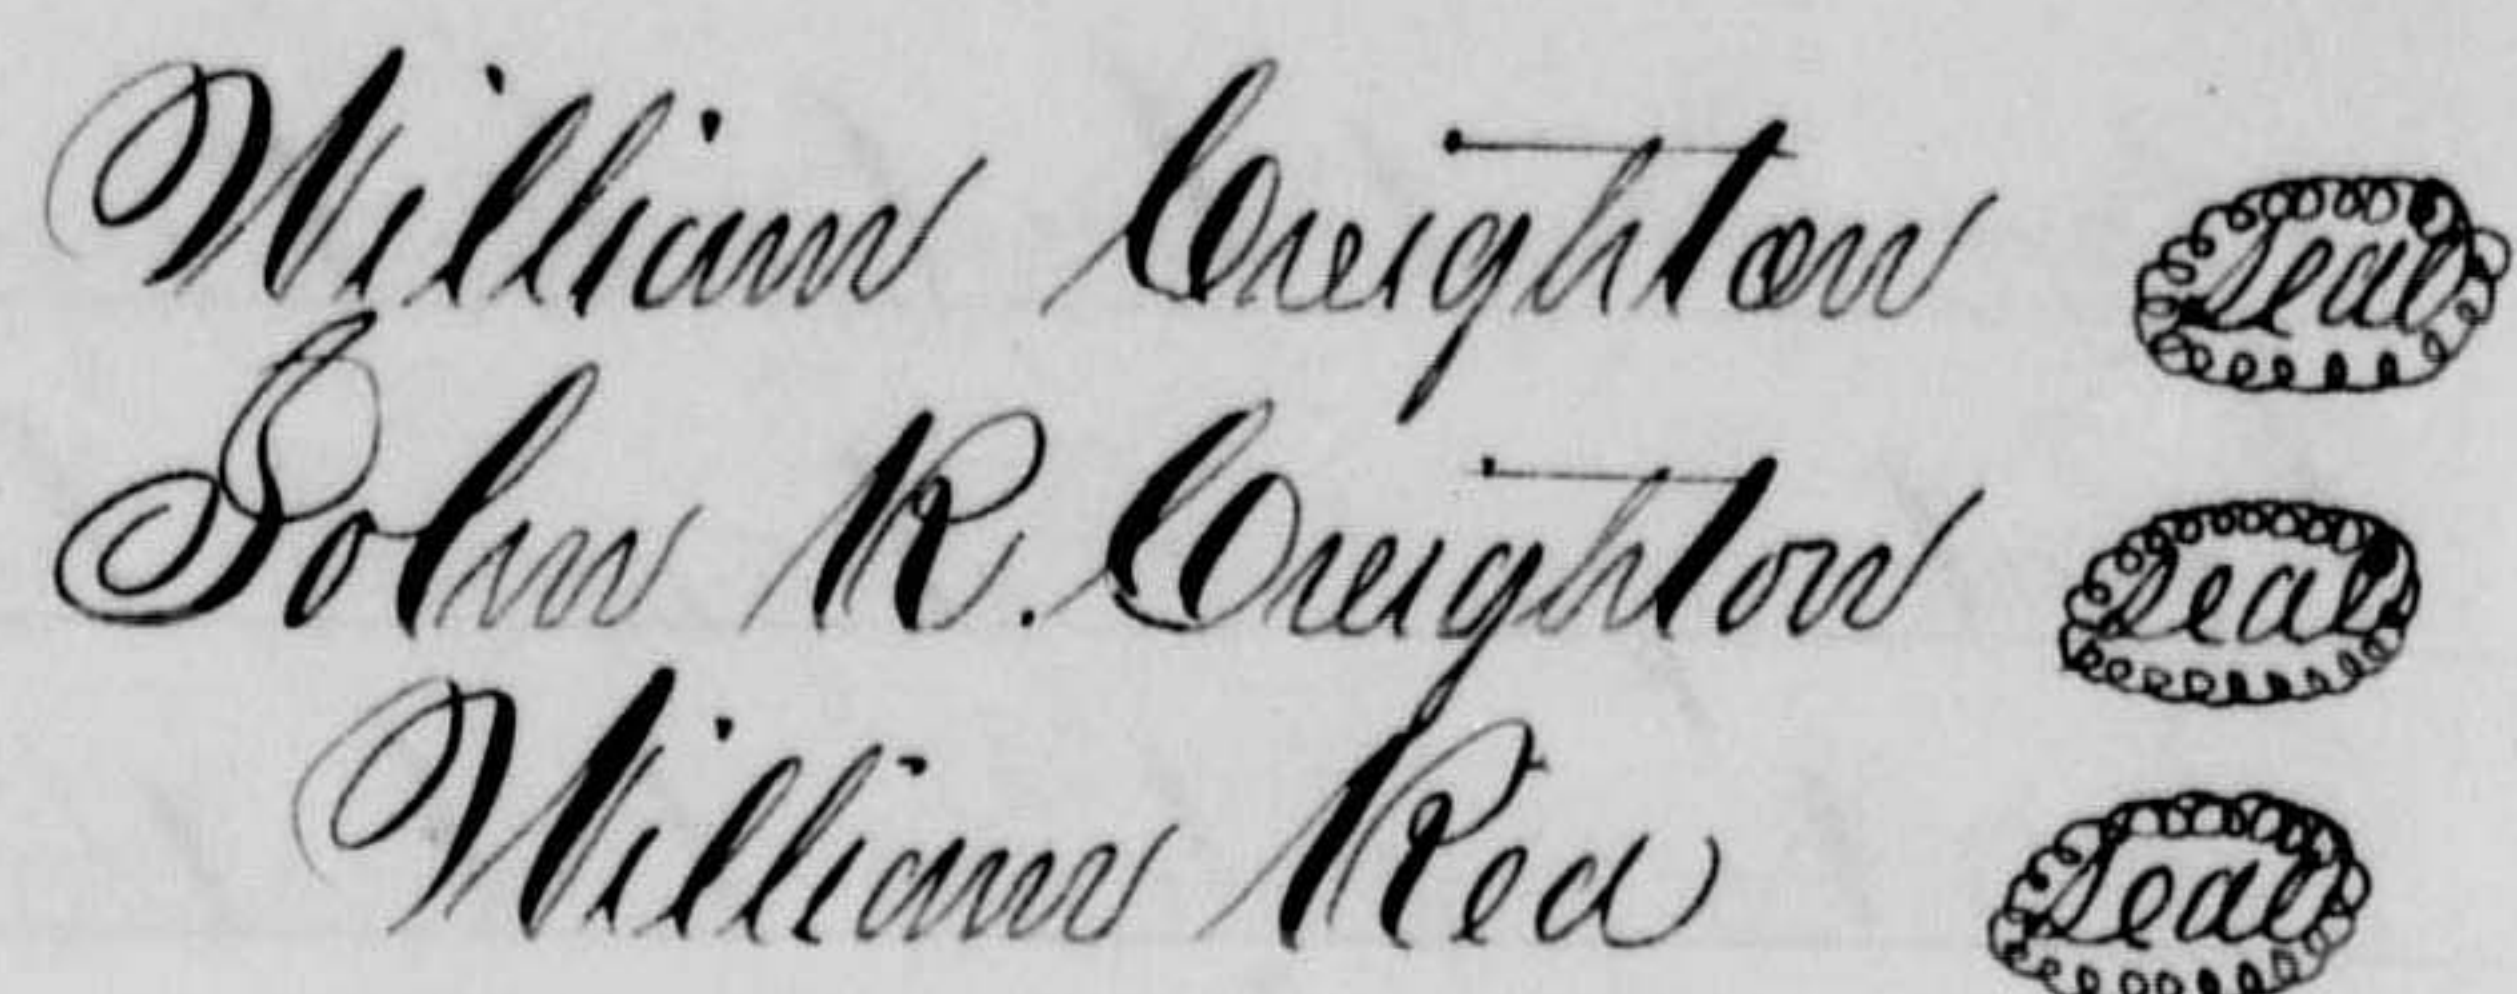 William Creighton Seal
John R. Creighton Seal
William Rea Seal